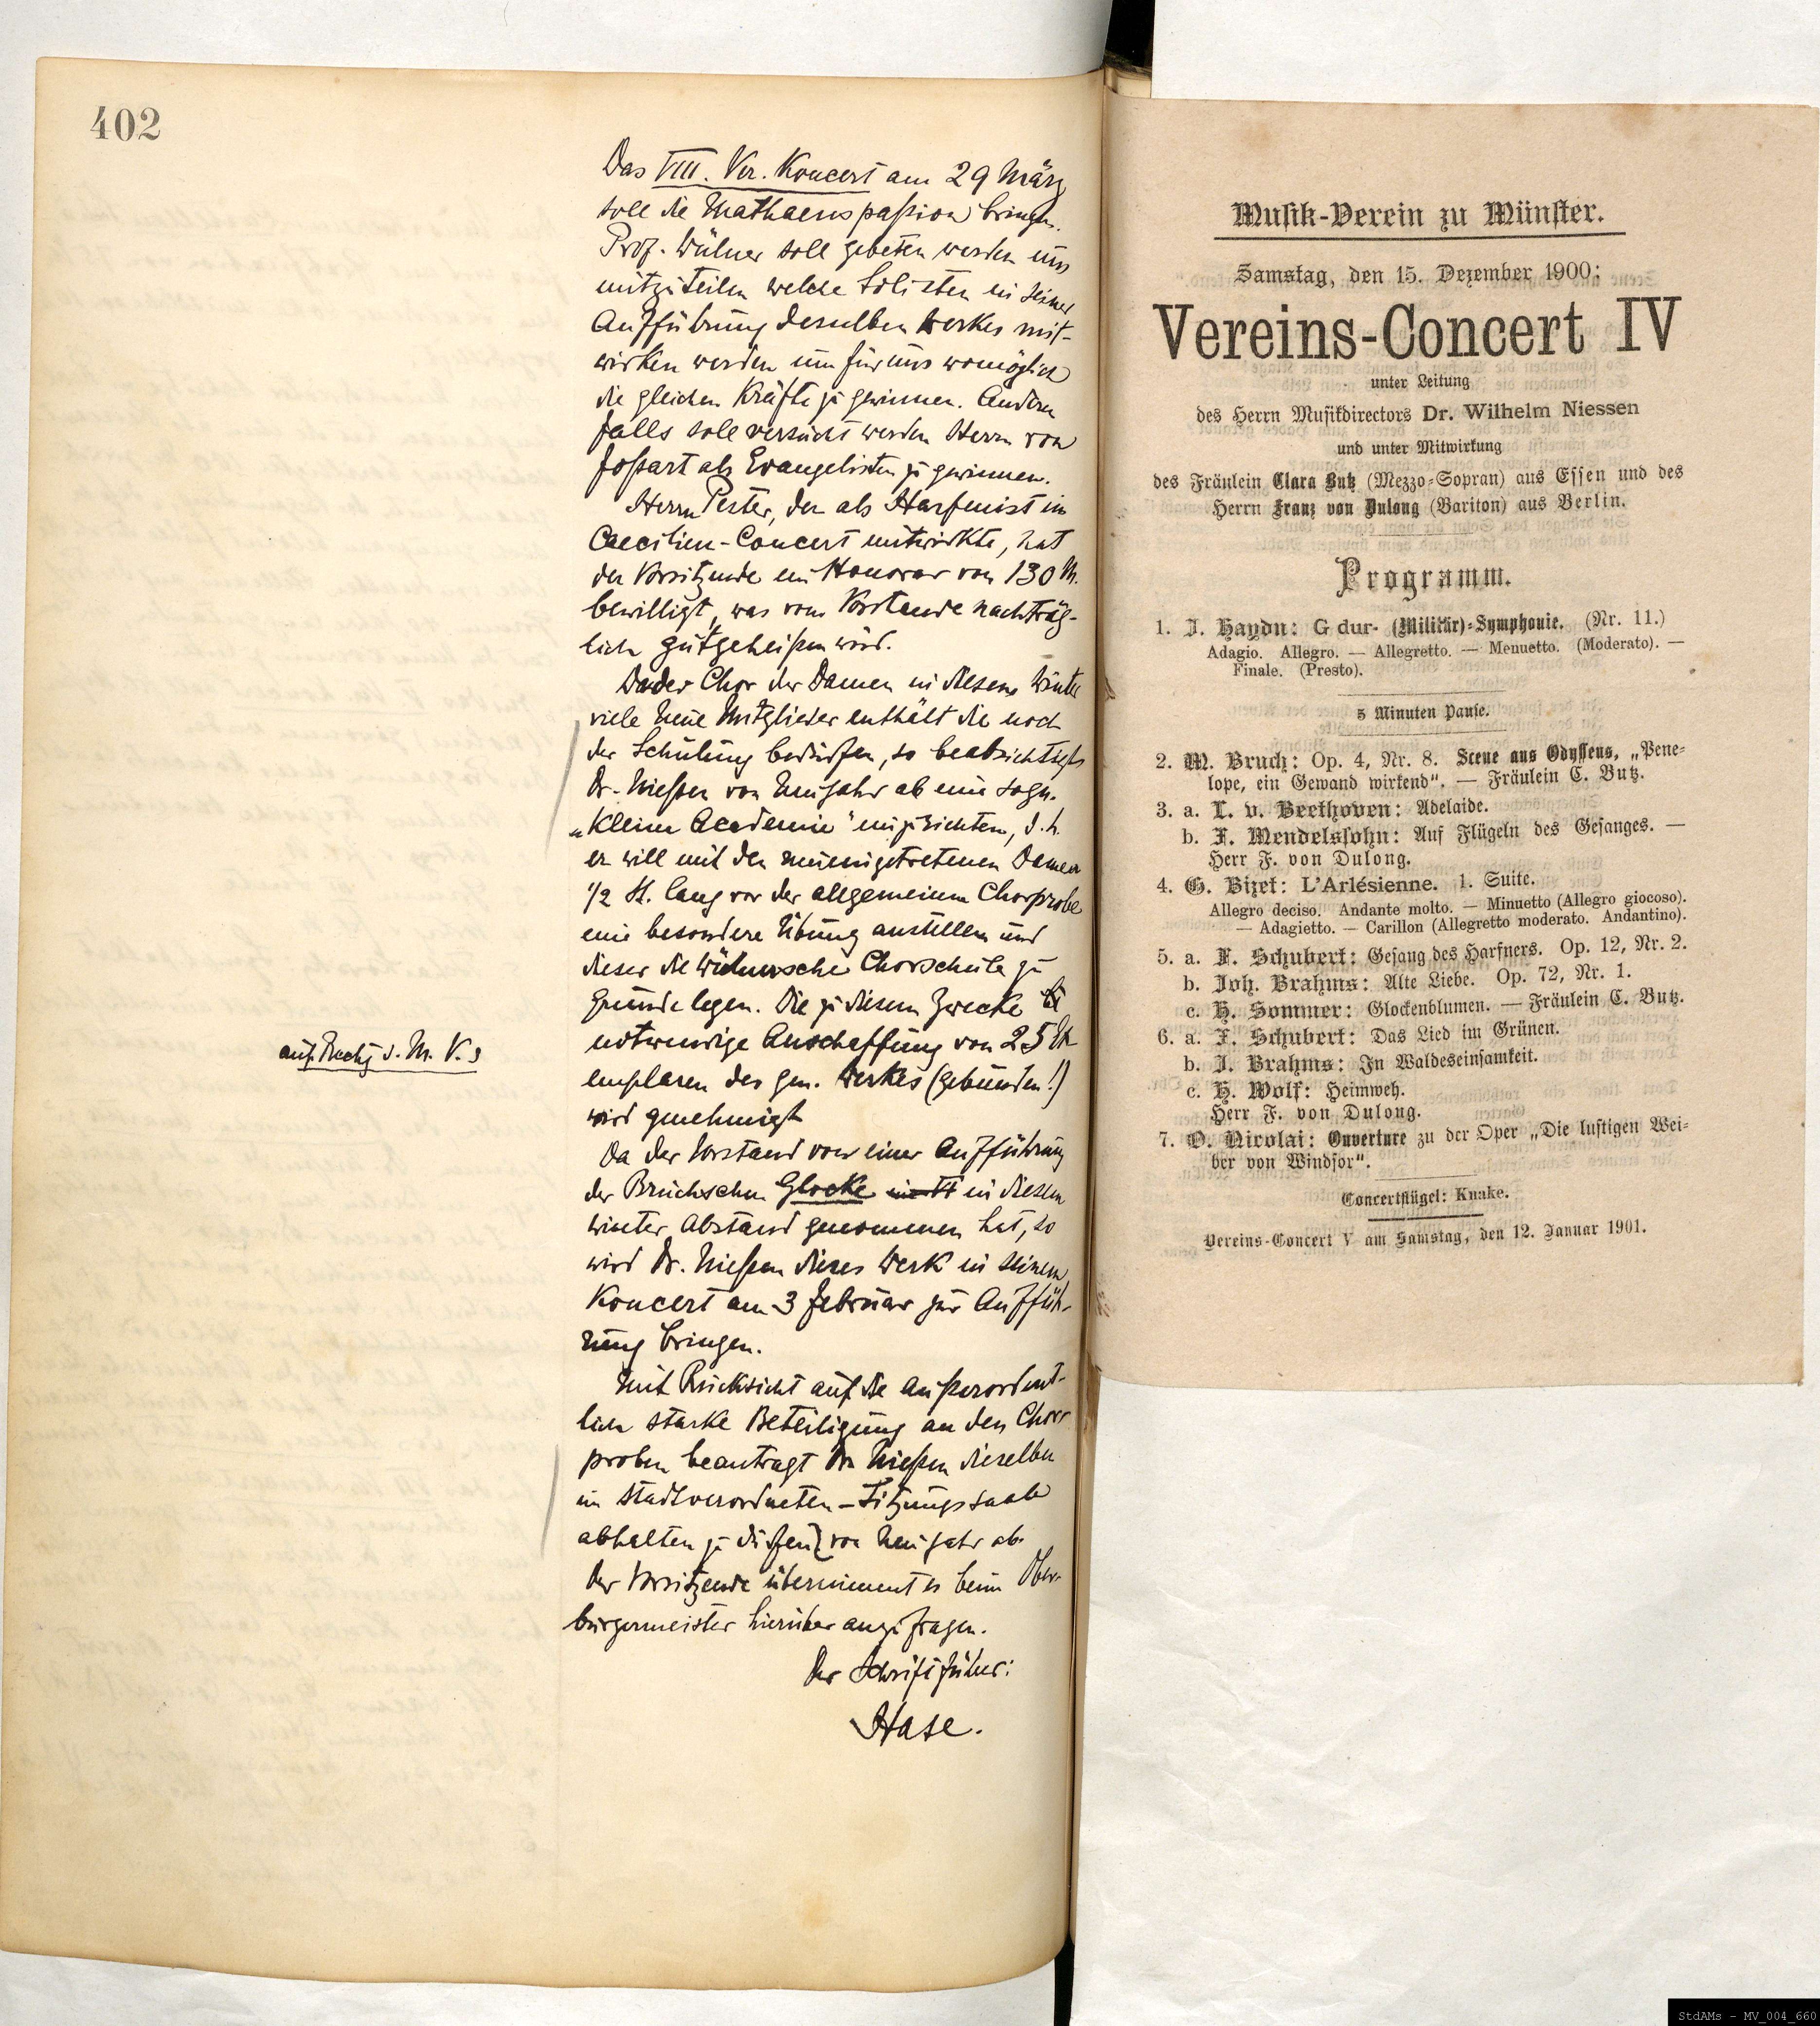 402
Das VIII. Ver. Koncert am 29 März
soll die Mathaeuspaßion bringen.
Prof. Wülner soll gebeten werden uns
mitzuteilen welche Solisten in seiner
Aufführung desselben Werkes mit-
wirken werden um für uns womöglich
die gleichen Kräfte zu gewinnen. Andern
falls soll versucht werden Herrn von
Foßart als Evangelisten zu gewinnen.
Herrn Pester, der als Harfenist im
Caecilien-Concert mitwirkte, hat
der Vorsitzende ein Honorar von 130 M.
bewilligt, was vom Vorstande nachträg-
lich gutgeheißen wird.
Da der Chor der Damen in diesem Winter
viele neue Mitglieder enthält die noch
der Schulung bedürfen, so beabsichtigt
Dr. Nießen von Neujahr ab eine sogn.
„Kleine Academie" einzurichten, d.h.
er will mit den neueingetretenen Damen
1/2 St. lang vor der allgemeinen Chorprobe
eine besondere Übung anstellen und
dieser die Wülnersche Chorschule zu
Grunde legen. Die zu diesem Zwecke
notwendige Anschaffung von 25 Ex-
emplaren des gen. Werkes (gebunden!)
auf Rechg d. M. V.s
wird genehmigt
Da der Vorstand von einer Aufführung
der Bruchschen Glocke in diesem
Winter Abstand genommen hat, so
wird Dr. Nießen dieses Werk in seinem
Koncert am 3 Februar zur Auffüh-
rung bringen.
Mit Rücksicht auf die außerordent-
lich starke Beteiligung an den Chor-
proben beantragt Dr Nießen dieselben
im Stadtverordneten-Sitzungssaale
abhalten zu dürfen von Neujahr ab.
Der Vorsitzende übernimmt es beim Ober-
bürgermeister hierüber anzufragen.
Der Schriftführer:
Hase.
Musik-Verein zu Münster.
Samstag, den 15. Dezember 1900:
Vereins-Concert IV
unter Leitung
des Herrn Musikdirectors Dr. Wilhelm Niessen
und unter Mitwirkung
des Fräulein Clara Butz (Mezzo-Sopran) aus Essen und des
Herrn Franz von Dulong (Bariton) aus Berlin.
Programm.
1. J. Haydn: G dur- (Militär)-Symphonie. (Nr. 11.)
Adagio. Allegro. — Allegretto. — Menuetto. (Moderato). —
Finale. (Presto).
5 Minuten Pause.
2. M. Bruch: Op. 4, Nr. 8. Scene aus Odysseus, „Pene-
lope, ein Gewand wirkend". — Fräulein C. Butz.
3. a. L. v. Beethoven: Adelaide.
b. F. Mendelssohn: Auf Flügeln des Gesanges. —
Herr F. von Dulong.
4. G. Bizet: L'Arlésienne. 1. Suite.
Allegro deciso. Andante molto. — Minuetto (Allegro giocoso).
— Adagietto. — Carillon (Allegretto moderato. Andantino).
5. a. F. Schubert: Gesang des Harfners. Op. 12, Nr. 2.
b. Joh. Brahms: Alte Liebe. Op. 72, Nr. 1.
c. H. Sommer: Glockenblumen. — Fräulein C. Butz.
6. a. F. Schubert: Das Lied im Grünen.
b. J. Brahms: In Waldeseinsamkeit.
c. H. Wolf: Heimweh.
Herr F. von Dulong.
7. O. Nicolai: Ouverture zu der Oper „Die lustigen Wei-
ber von Windsor".
Concertflügel: Knake.
Vereins-Concert V am Samstag, den 12. Januar 1901.
StdAMs - MV_004_660